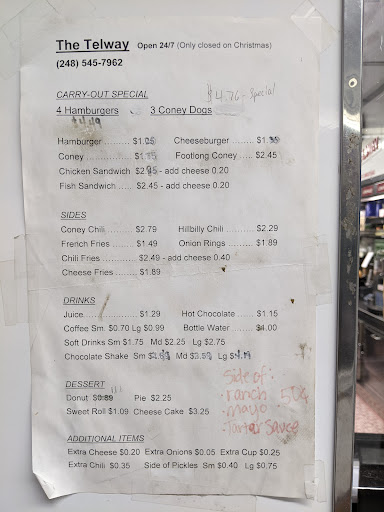 The Telway Open 24/7 (Only closed on Christmas)
(248) 545-7962
CARRY-OUT SPECIAL $4.76 - Special
4 Hamburgers 3 Coney Dogs
$4.19
Hamburger ......... Cheeseburger .......
Coney ................ Footlong Coney ..... $2.45
Chicken Sandwich - add cheese 0.20
Fish Sandwich ...... $2.45 - add cheese 0.20
SIDES
Coney Chili ......... $2.79 Hillbilly Chili ......... $2.29
French Fries ........ $1.49 Onion Rings ......... $1.89
Chili Fries ............ $2.49 - add cheese 0.40
Cheese Fries ....... $1.89
DRINKS
Juice................... $1.29 Hot Chocolate ...... $1.15
Coffee Sm. $0.70 Lg $0.99 Bottle Water ........ $1.00
Soft Drinks Sm $1.75 Md $2.25 Lg $2.75
Chocolate Shake Sm Md Lg
DESSERT
Donut Pie $2.25
Sweet Roll $1.09 Cheese Cake $3.25
Side of:
ranch 50¢
mayo
Tartar Sauce
ADDITIONAL ITEMS
Extra Cheese $0.20 Extra Onions $0.05 Extra Cup $0.25
Extra Chili $0.35 Side of Pickles Sm $0.40 Lg $0.75